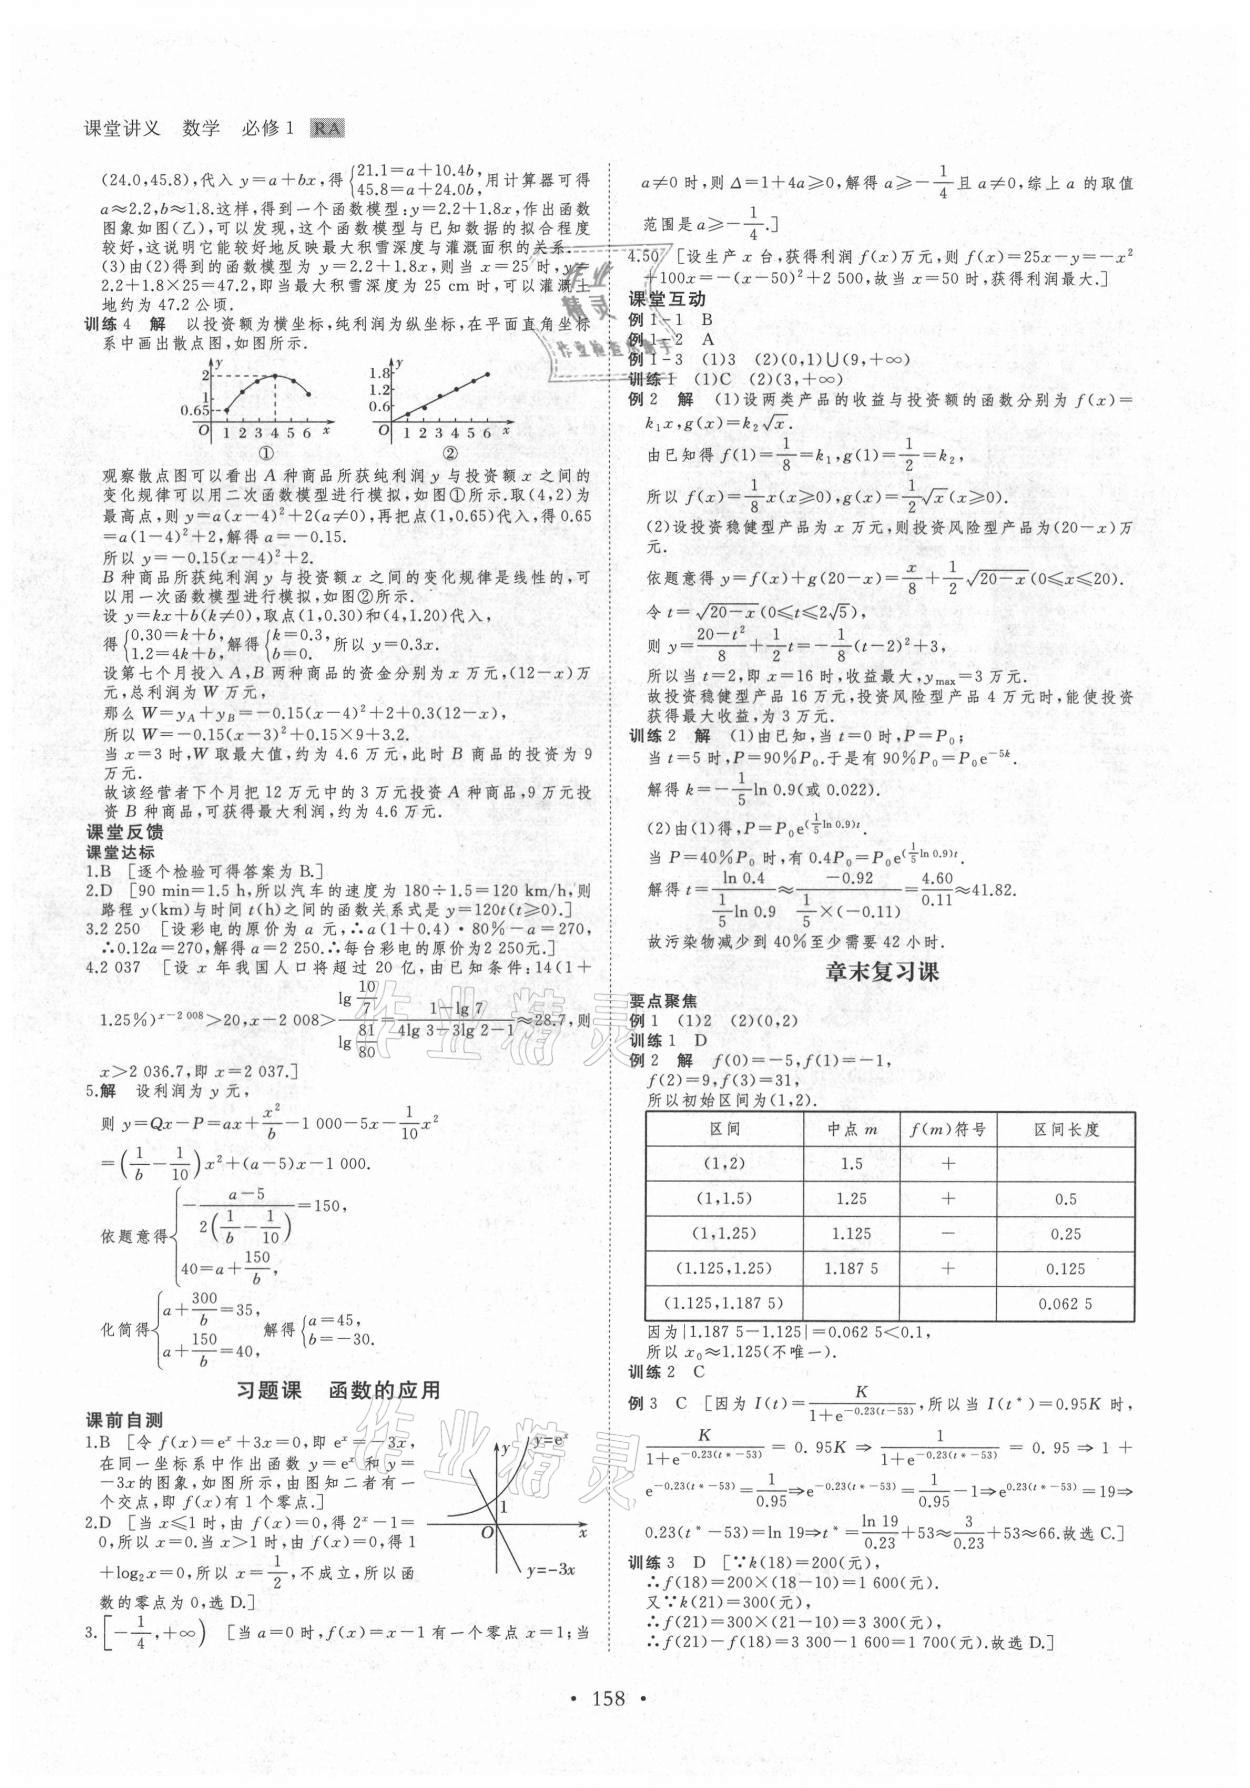 课堂讲义 数学 必修1 RA
(24.0,45.8),代入 y=a+bx,得{21.1=a+10.4b, 45.8=a+24.0b,用计算器可得
a≈2.2,b≈1.8.这样,得到一个函数模型:y=2.2+1.8x,作出函数
图象如图(乙),可以发现,这个函数模型与已知数据的拟合程度
较好,这说明它能较好地反映最大积雪深度与灌溉面积的关系.
(3)由(2)得到的函数模型为 y=2.2+1.8x,则当 x=25 时,y=
2.2+1.8×25=47.2,即当最大积雪深度为 25 cm时,可以灌溉土
地约为 47.2 公顷.
训练4 解 以投资额为横坐标,纯利润为纵坐标,在平面直角坐标
系中画出散点图,如图所示.
y 2 1 0.65 O 1 2 3 4 5 6 x ①
y 1.8 1.2 0.6 O 1 2 3 4 5 6 x ②
观察散点图可以看出 A 种商品所获纯利润 y 与投资额 x 之间的
变化规律可以用二次函数模型进行模拟,如图①所示.取(4,2)为
最高点,则 y=a(x-4)²+2(a≠0),再把点(1,0.65)代入,得 0.65
=a(1-4)²+2,解得 a=-0.15.
所以 y=-0.15(x-4)²+2.
B 种商品所获纯利润 y 与投资额 x 之间的变化规律是线性的,可
以用一次函数模型进行模拟,如图②所示.
设 y=kx+b(k≠0),取点(1,0.30)和(4,1.20)代入,
得{0.30=k+b, 1.2=4k+b,解得{k=0.3, b=0.所以 y=0.3x.
设第七个月投入 A,B 两种商品的资金分别为 x 万元,(12-x)万
元,总利润为 W 万元,
那么 W=y_A+y_B=-0.15(x-4)²+2+0.3(12-x),
所以 W=-0.15(x-3)²+0.15×9+3.2.
当 x=3 时,W 取最大值,约为 4.6 万元,此时 B 商品的投资为 9
万元.
故该经营者下个月把 12 万元中的 3 万元投资 A 种商品,9 万元投
资 B 种商品,可获得最大利润,约为 4.6 万元.
课堂反馈
课堂达标
1.B [逐个检验可得答案为 B.]
2.D [90 min=1.5 h,所以汽车的速度为 180÷1.5=120 km/h,则
路程 y(km)与时间 t(h)之间的函数关系式是 y=120t(t≥0).]
3.2 250 [设彩电的原价为 a 元,∴a(1+0.4)·80%-a=270,
∴0.12a=270,解得 a=2 250.∴每台彩电的原价为2 250元.]
4.2 037 [设 x 年我国人口将超过 20 亿,由已知条件:14(1+
1.25%)^(x-2 008)>20,x-2 008>(lg 10/7)/(lg 81/80)=(1-lg 7)/(4lg 3-3lg 2-1)≈28.7,则
x>2 036.7,即 x=2 037.]
5.解 设利润为 y 元,
则 y=Qx-P=ax+x²/b-1 000-5x-1/10x²
=(1/b-1/10)x²+(a-5)x-1 000.
依题意得{-(a-5)/(2(1/b-1/10))=150, 40=a+150/b,
化简得{a+300/b=35, a+150/b=40,解得{a=45, b=-30.
习题课 函数的应用
课前自测
1.B [令 f(x)=eˣ+3x=0,即 eˣ=-3x,
在同一坐标系中作出函数 y=eˣ 和 y=
-3x的图象,如图所示,由图知二者有一
个交点,即 f(x)有 1 个零点.]
y y=eˣ 1 O x y=-3x
2.D [当 x≤1 时,由 f(x)=0,得 2ˣ-1=
0,所以 x=0.当 x>1 时,由 f(x)=0,得 1
+log₂x=0,所以 x=1/2,不成立,所以函
数的零点为 0,选 D.]
3.[-1/4,+∞) [当 a=0 时,f(x)=x-1 有一个零点 x=1;当
a≠0 时,则 Δ=1+4a≥0,解得 a≥-1/4且 a≠0,综上 a 的取值
范围是 a≥-1/4.]
4.50 [设生产 x 台,获得利润 f(x)万元,则 f(x)=25x-y=-x²
+100x=-(x-50)²+2 500,故当 x=50 时,获得利润最大.]
课堂互动
例1-1 B
例1-2 A
例1-3 (1)3 (2)(0,1)∪(9,+∞)
训练1 (1)C (2)(3,+∞)
例2 解 (1)设两类产品的收益与投资额的函数分别为 f(x)=
k₁x,g(x)=k₂√x.
由已知得 f(1)=1/8=k₁,g(1)=1/2=k₂,
所以 f(x)=1/8x(x≥0),g(x)=1/2√x(x≥0).
(2)设投资稳健型产品为 x 万元,则投资风险型产品为(20-x)万
元.
依题意得 y=f(x)+g(20-x)=x/8+1/2√(20-x)(0≤x≤20).
令 t=√(20-x)(0≤t≤2√5),
则 y=(20-t²)/8+1/2t=-1/8(t-2)²+3,
所以当 t=2,即 x=16 时,收益最大,y_max=3 万元.
故投资稳健型产品 16 万元,投资风险型产品 4 万元时,能使投资
获得最大收益,为 3 万元.
训练2 解 (1)由已知,当 t=0 时,P=P₀;
当 t=5 时,P=90%P₀.于是有 90%P₀=P₀e^(-5k).
解得 k=-1/5ln 0.9(或 0.022).
(2)由(1)得,P=P₀e^((1/5 ln 0.9)t).
当 P=40%P₀ 时,有 0.4P₀=P₀e^((1/5 ln 0.9)t).
解得 t=(ln 0.4)/(1/5ln 0.9)≈(-0.92)/(1/5×(-0.11))=4.60/0.11≈41.82.
故污染物减少到 40%至少需要 42 小时.
章末复习课
要点聚焦
例1 (1)2 (2)(0,2)
训练1 D
例2 解 f(0)=-5,f(1)=-1,
f(2)=9,f(3)=31,
所以初始区间为(1,2).
区间 中点 m f(m)符号 区间长度
(1,2) 1.5 +
(1,1.5) 1.25 + 0.5
(1,1.25) 1.125 - 0.25
(1.125,1.25) 1.187 5 + 0.125
(1.125,1.187 5) 0.062 5
因为|1.187 5-1.125|=0.062 5<0.1,
所以 x₀≈1.125(不唯一).
训练2 C
例3 C [因为 I(t)=K/(1+e^(-0.23(t-53))),所以当 I(t*)=0.95K 时,
K/(1+e^(-0.23(t*-53)))=0.95K⇒1/(1+e^(-0.23(t*-53)))=0.95⇒1+
e^(-0.23(t*-53))=1/0.95⇒e^(-0.23(t*-53))=1/0.95-1⇒e^(0.23(t*-53))=19⇒
0.23(t*-53)=ln 19⇒t*=ln 19/0.23+53≈3/0.23+53≈66.故选C.]
训练3 D [∵k(18)=200(元),
∴f(18)=200×(18-10)=1 600(元).
又∵k(21)=300(元),
∴f(21)=300×(21-10)=3 300(元),
∴f(21)-f(18)=3 300-1 600=1 700(元).故选 D.]
• 158 •
作业精灵
作业精灵
作业精灵